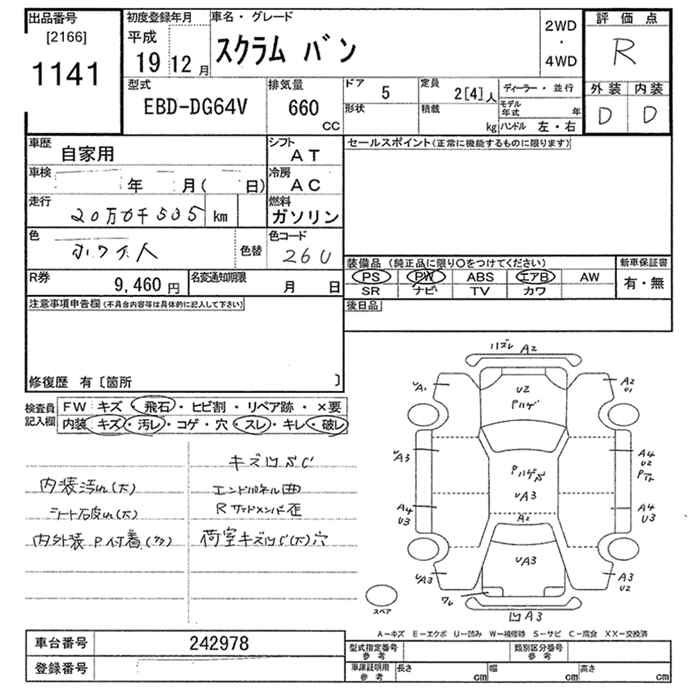 出品番号
[2166]
1141
初度登録年月
平成
19 12月
車名・グレード
スクラム バン
2WD
・
4WD
評価点
R
外装 内装
D D
型式
EBD-DG64V
排気量
660
cc
ドア 5
定員 2[4]人
ディーラー・並行
形状
積載 kg
モデル年式 年
ハンドル 左・右
車歴
自家用
シフト
AT
車検
年 月( 日)
冷房
AC
走行
km
燃料
ガソリン
色
色替
色コード
26U
R券
9,460 円
名変通知期限
月 日
セールスポイント(正常に機能するものに限ります)
装備品 (純正品に限り○をつけてください)
新車保証書
PS PW ABS エアB AW
SR ナビ TV カワ
有・無
後日品
注意事項申告欄(不具合内容等は具体的に記入して下さい)
修復歴 有〔箇所 〕
検査員
記入欄
FW キズ・飛石・ヒビ割・リペア跡・×要
内装 キズ・汚レ・コゲ・穴・スレ・キレ・破レ
内装汚れ(大)
シート破れ(大)
エンドパネル曲
Rサイドメンバー歪
ハズレ A2
UA1
U2
Pハゲ
A2
U1
UA3
UA3
A4
U2
A4
U3
A1
A4
U3
UA3
UA3
A3
U2
ワレ
凹A3
スペア
A－キズ E－エクボ U－凹み W－補修跡 S－サビ C－腐食 XX－交換済
車台番号
242978
登録番号
型式指定番号
参考
類別区分番号
参考
車庫証明用
参考
長さ cm
幅 cm
高さ cm